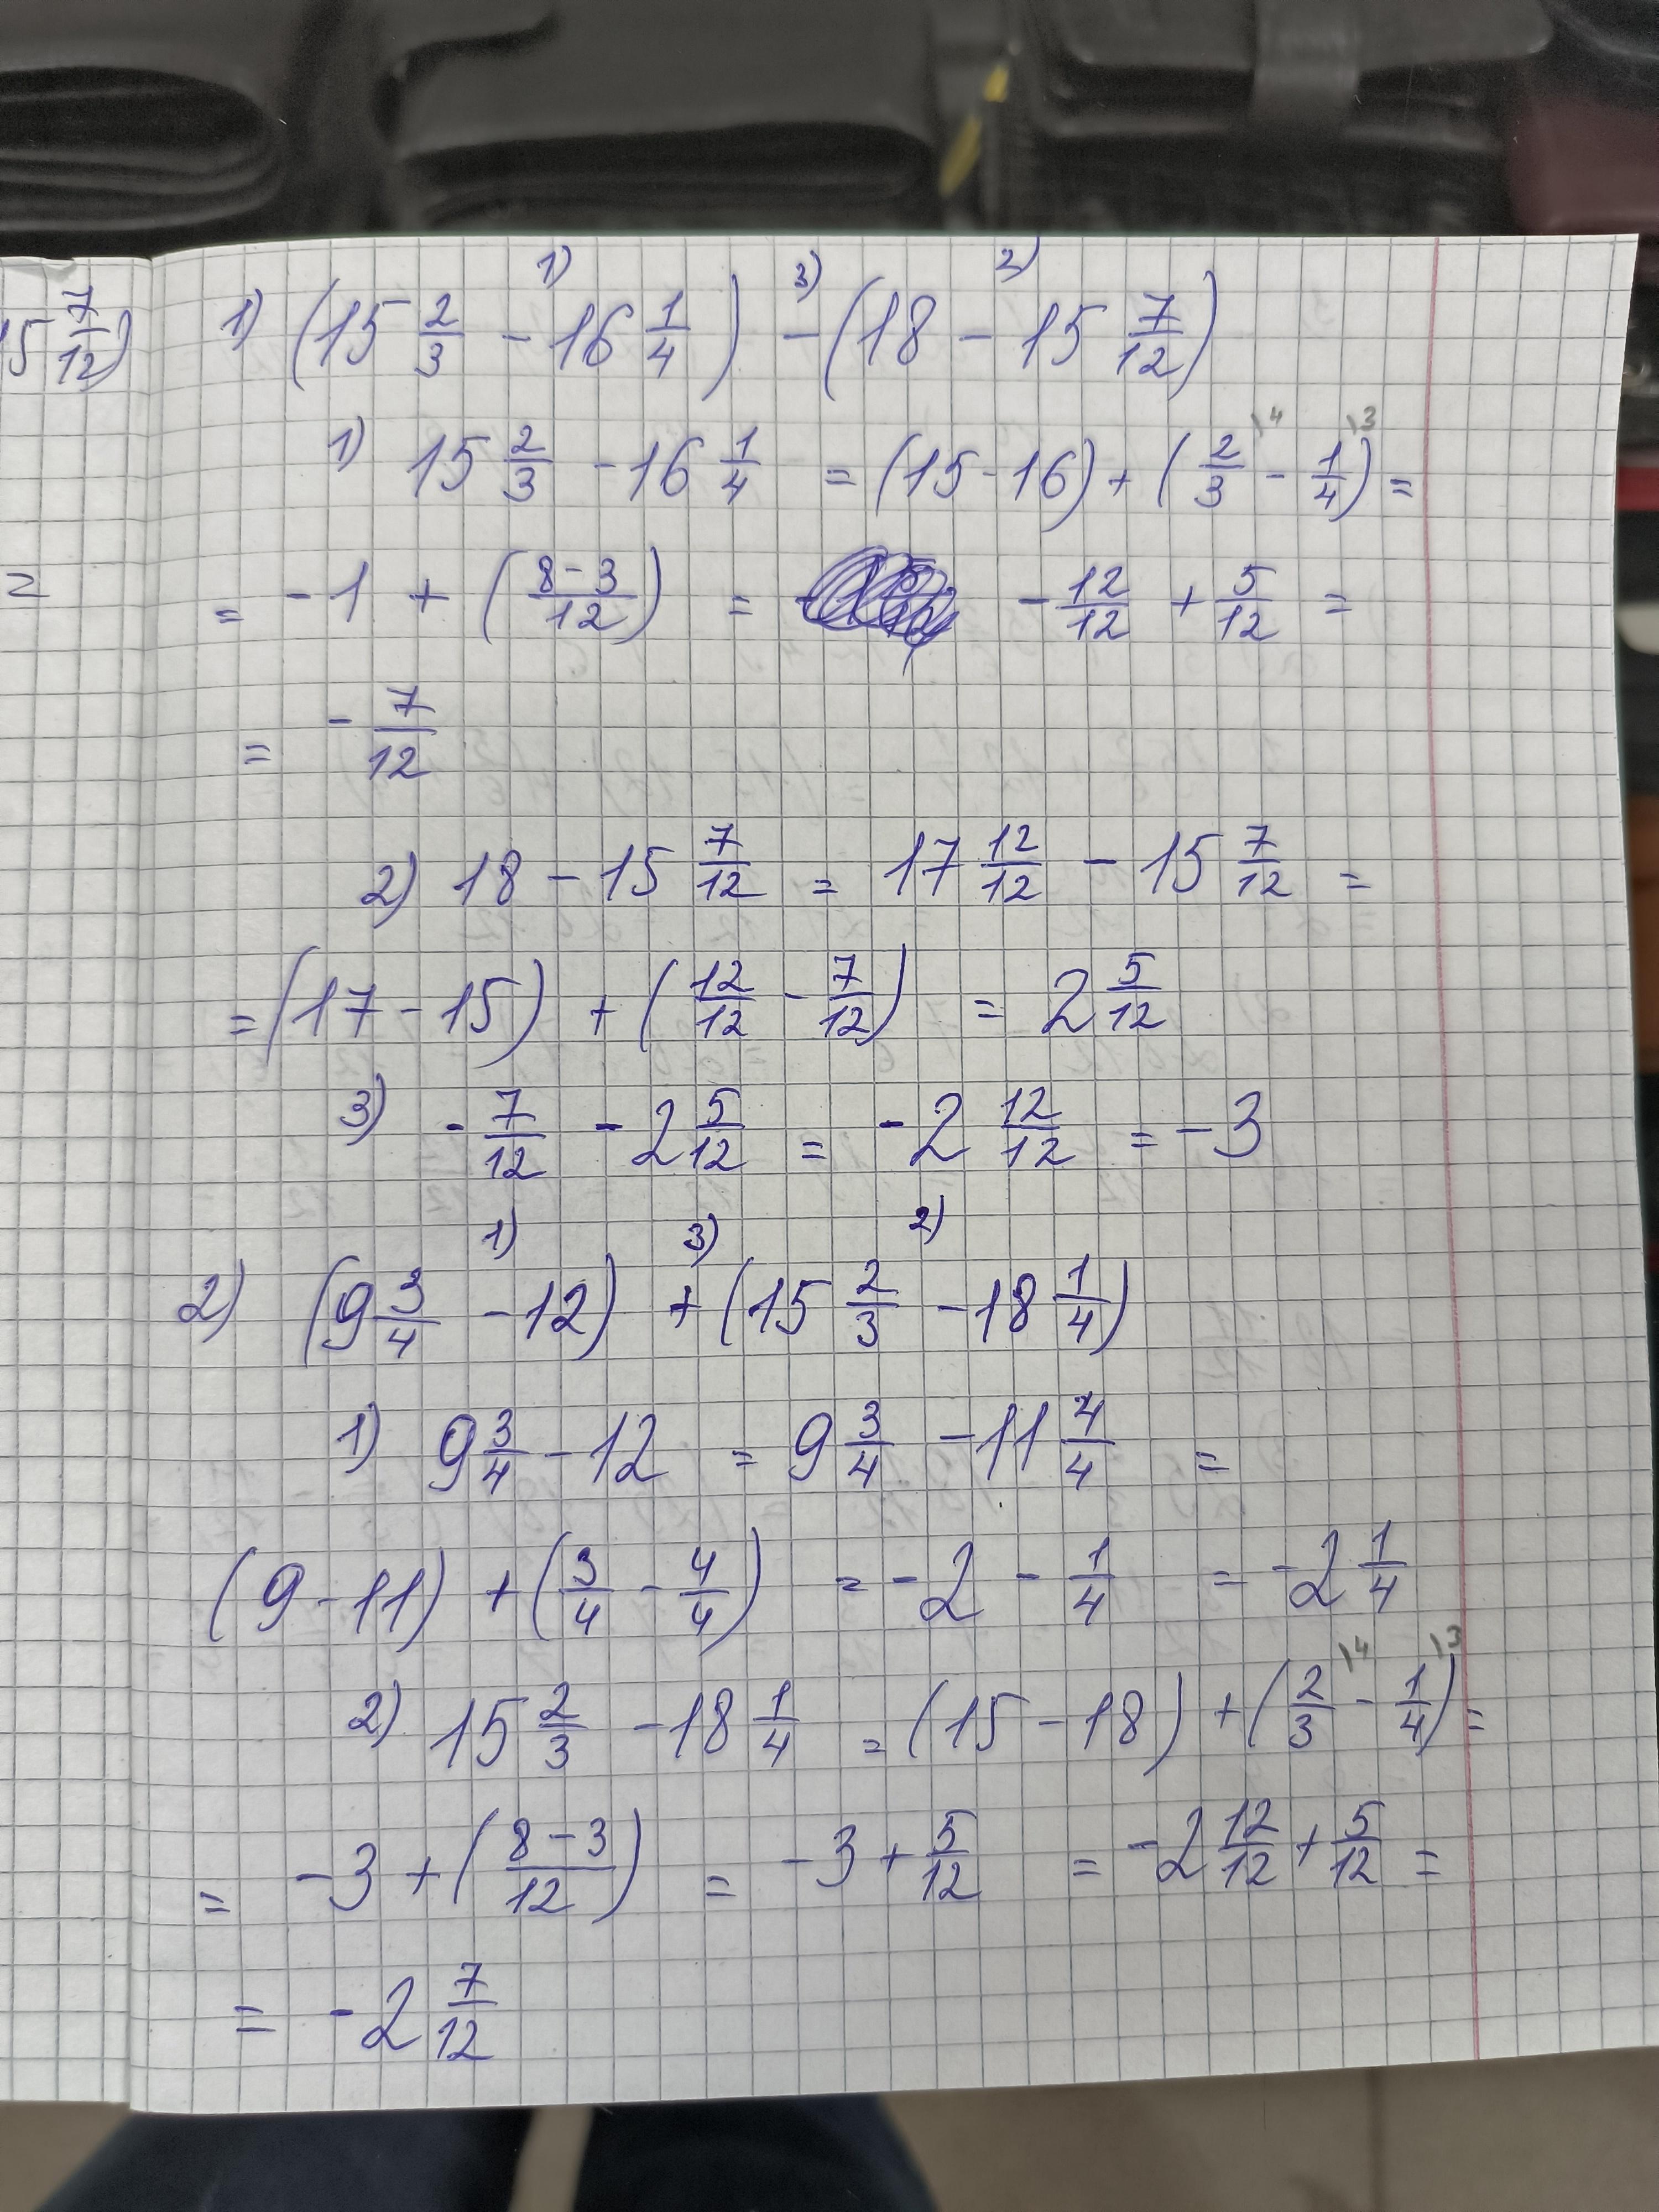 15 7/12)
=
1) 3) 2)
1) (15 2/3 - 16 1/4) - (18 - 15 7/12)
1) 15 2/3 - 16 1/4 = (15 - 16) + (2/3 \4 - 1/4 \3) =
= -1 + ((8-3)/12) = - 12/12 + 5/12 =
= - 7/12
2) 18 - 15 7/12 = 17 12/12 - 15 7/12 =
= (17 - 15) + (12/12 - 7/12) = 2 5/12
3) - 7/12 - 2 5/12 = - 2 12/12 = - 3
1) 3) 2)
2) (9 3/4 - 12) + (15 2/3 - 18 1/4)
1) 9 3/4 - 12 = 9 3/4 - 11 4/4 =
(9 - 11) + (3/4 - 4/4) = - 2 - 1/4 = - 2 1/4
2) 15 2/3 - 18 1/4 = (15 - 18) + (2/3 \4 - 1/4 \3) =
= -3 + ((8-3)/12) = -3 + 5/12 = - 2 12/12 + 5/12 =
= - 2 7/12